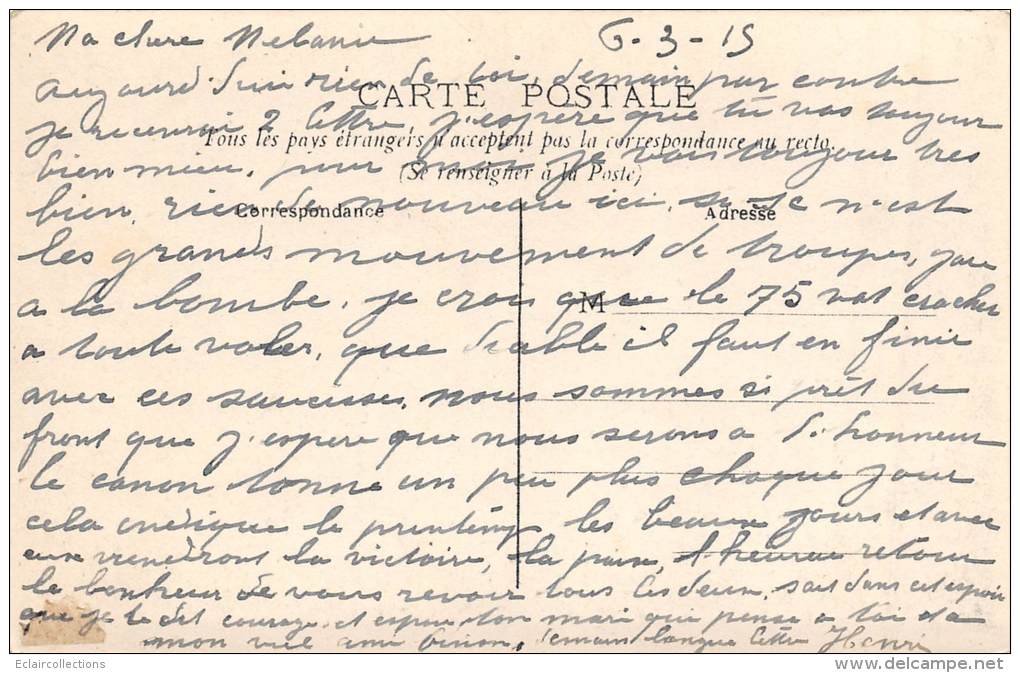 Ma chere Melanie 6-3-15
aujourd'hui rien de toi, demain par contre
CARTE POSTALE
je recevrai 2 lettre, j'espere que tu vas toujour
Tous les pays étrangers n'acceptent pas la correspondance au recto.
bien mieu, pour moi je vais toujour tres
(Se renseigner à la Poste)
bien, rien de nouveau ici, si se n'est
Correspondance Adresse
les grands mouvement de troupes, gare
a la bombe, je crois que le 75 vat cracher
M
a toute voler, que diable il faut en finir
avec ces saucisses, nous sommes si prêt du
front que j'espere que nous serons a d'honneur
le canon tonne un peu plus chaque jour
cela indique le printemp les beaux jours et avec
eux viendront la victoire, la paix, l'heureux retour
le bonheur de vous revoir tous les deux, sait dans cet espoir
que je te dit courage et espoir ton mari qui pense a toi et a
mon viel ami demain longue lettre Henri
Eclaircollections
www.delcampe.net